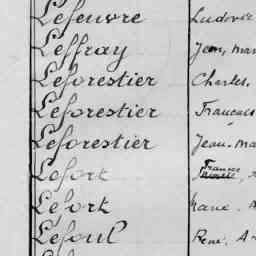 Lefeuvre Ludovic
Leffray Jean, Mar
Leforestier Charles.
Leforestier Francois
Leforestier Jean-Ma
Lefort Francois
Lefort Marie. A
Lefoul René. A